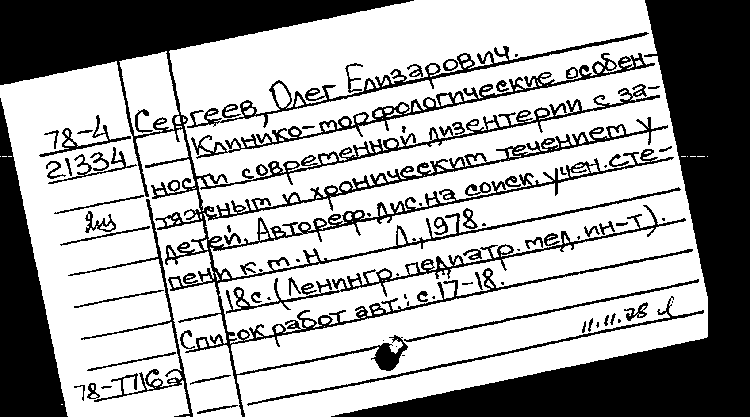 Сергеев, Олег Елизарович.
78-4
21334
Клинико-морфологические особен-
ности современной дизентерии с за-
тяжным и хроническим течением у
детей. Автореф. дис. на соиск. учен. сте-
пени к. м. н. Л., 1978.
18с. (Ленингр. педиатр. мед. ин-т).
Список работ авт.: с. 17-18.
78-7716а
11.11.78